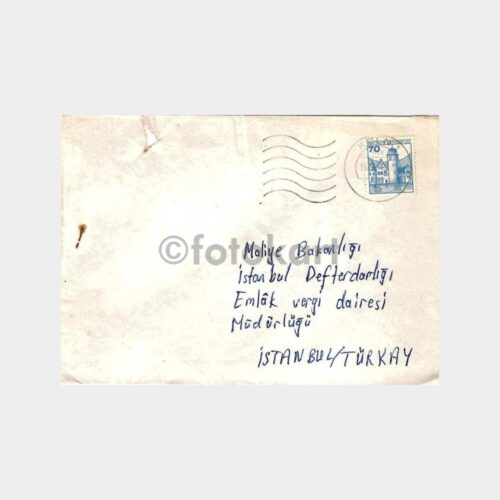 70
©fotokart
Maliye Bakanlığı
İstanbul Defterdarlığı
Emlâk vergi dairesi
Müdürlüğü
İSTANBUL/TÜRKAY